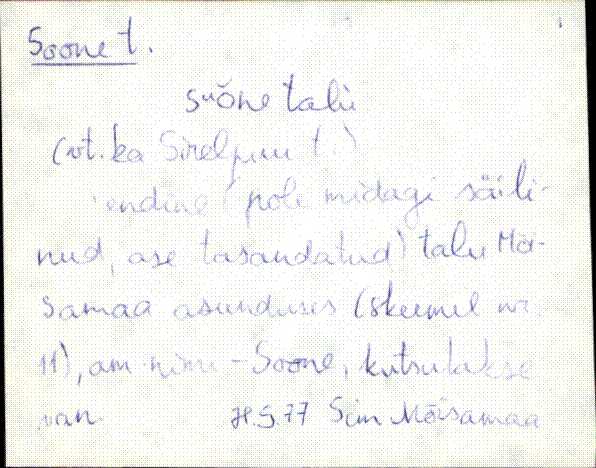 Soone t.
sᵘõne talu
(vt. ka Sirelpuu t.)
endine (pole midagi säili-
nud, ase tasandatud) talu Mõi-
samaa asunduses (skeemil nr.
11), am. nimi - Soone, kutsutakse
van. H.S. 77 Sim Mõisamaa